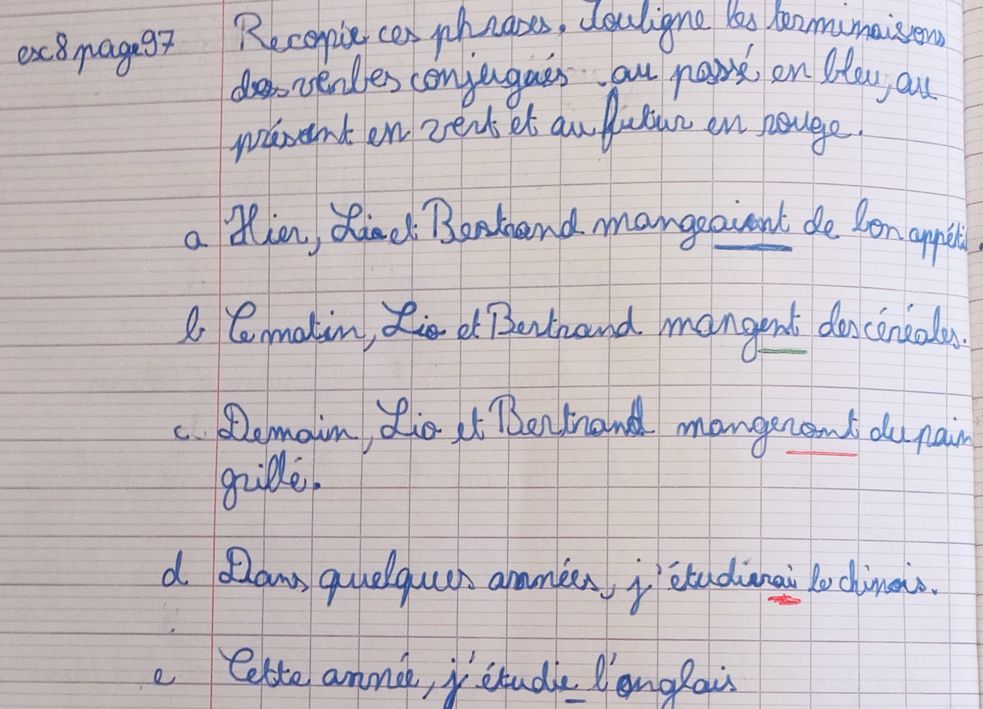 ex 8 page 97 Recopie ces phrases. Souligne les terminaisons
des verbes conjugués au passé en bleu, au
présent en vert et au futur en rouge.
a Hier, Lio et Bertrand mangeaient de bon appétit.
b Ce matin, Lio et Bertrand mangent des céréales.
c. Demain, Lio et Bertrand mangeront du pain
grillé.
d Dans quelques années, j'étudierai le chinois.
e Cette année, j'étudie l'anglais